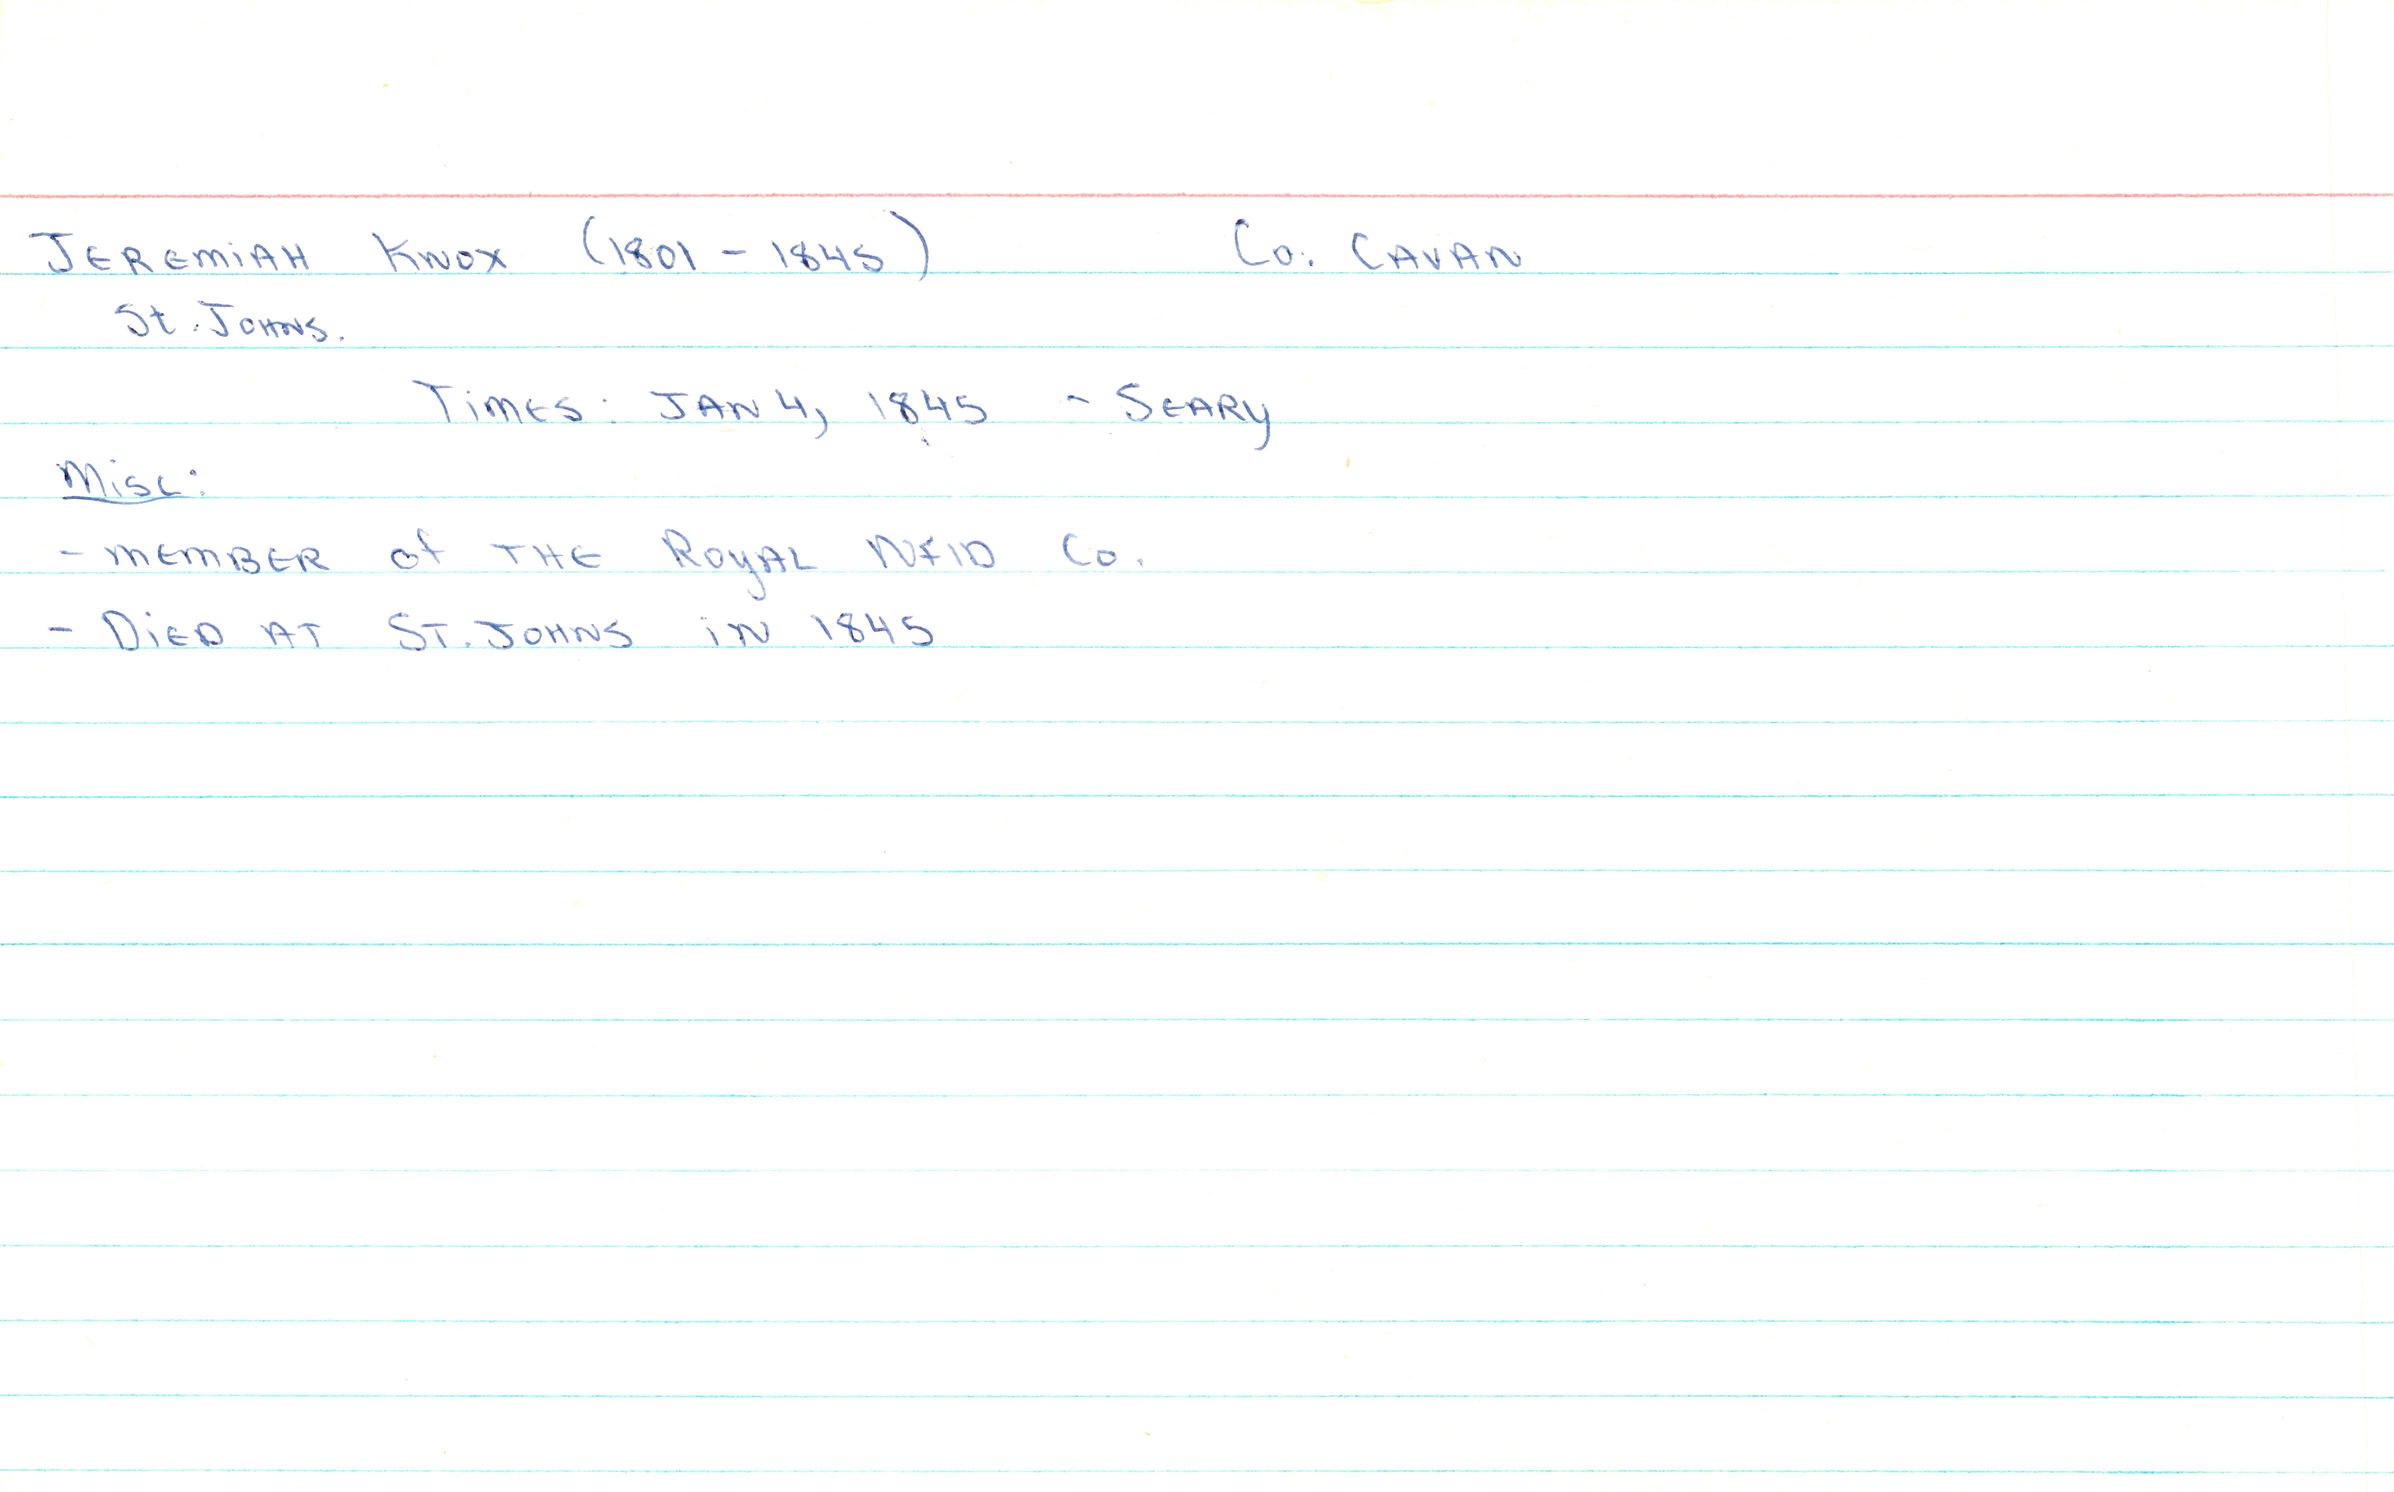 JEREMiAH KNOX (1801 - 1845) Co. CAVAN
St. JOHNS.
TiMES: JAN 4, 1845 - SEARY
Misc:
- MEMBER of THE ROYAL NFLD Co.
- DiED AT ST. JOHNS iN 1845